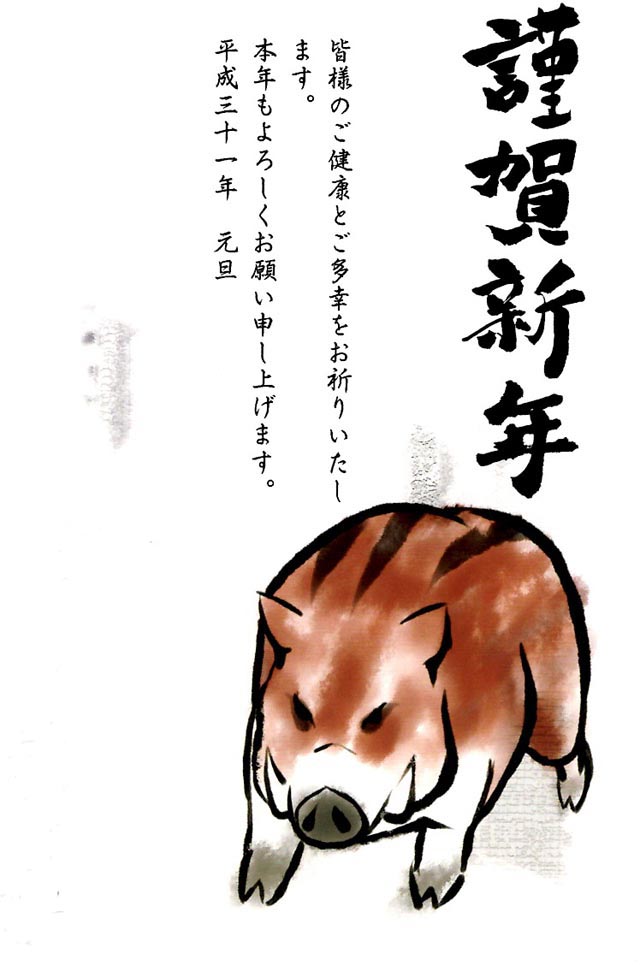 謹賀新年
皆様のご健康とご多幸をお祈りいたし
ます。
本年もよろしくお願い申し上げます。
平成三十一年　元旦